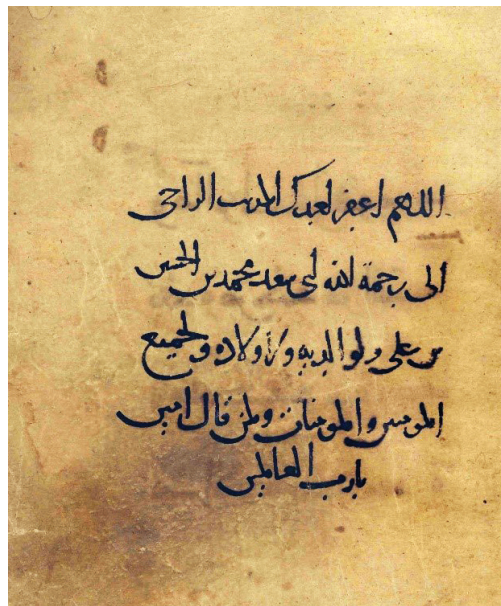 اللهم اغفر لعبدك المذنب الراجي
الى رحمة الله أبى سعد محمد بن الحسن
بن على ولوالديه ولأولاده ولجميع
المومنين والمومنات ولمن قال امين
يارب العالمين